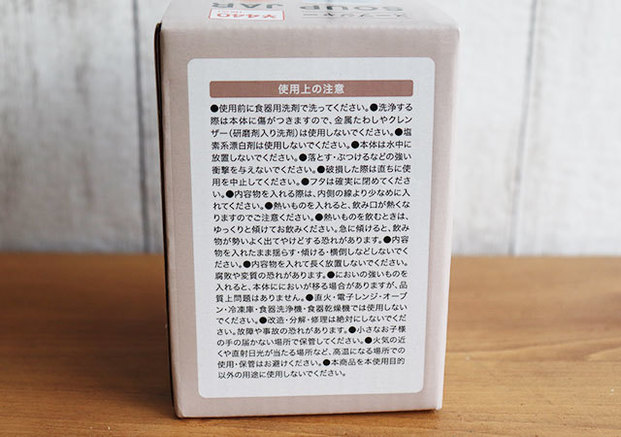 スープジャー
SOUP JAR
¥440
使用上の注意
●使用前に食器用洗剤で洗ってください。●洗浄する
際は本体に傷がつきますので、金属たわしやクレン
ザー(研磨剤入り洗剤)は使用しないでください。●塩
素系漂白剤は使用しないでください。●本体は水中に
放置しないでください。●落とす・ぶつけるなどの強い
衝撃を与えないでください。●破損した際は直ちに使用
を中止してください。●フタは確実に閉めてくださ
い。●内容物を入れる際は、内側の線より少なめに入
れてください。●熱いものを入れると、飲み口が熱くな
りますのでご注意ください。●熱いものを飲むときは、
ゆっくりと傾けてお飲みください。急に傾けると、飲み
物が勢いよく出てやけどする恐れがあります。●内容
物を入れたまま揺らす・傾ける・横倒しなどしないでく
ださい。●内容物を入れて長く放置しないでください。
腐敗や変質の恐れがあります。●においの強いものを
入れると、本体ににおいが移る場合がありますが、品
質上問題はありません。●直火・電子レンジ・オーブ
ン・冷凍庫・食器洗浄機・食器乾燥機では使用しない
でください。●改造・分解・修理は絶対にしないでくだ
さい。故障や事故の恐れがあります。●小さなお子様
の手の届かない場所で保管してください。●火気の近
くや直射日光が当たる場所など、高温になる場所での
使用・保管はお避けください。●本商品を本使用目的
以外の用途に使用しないでください。